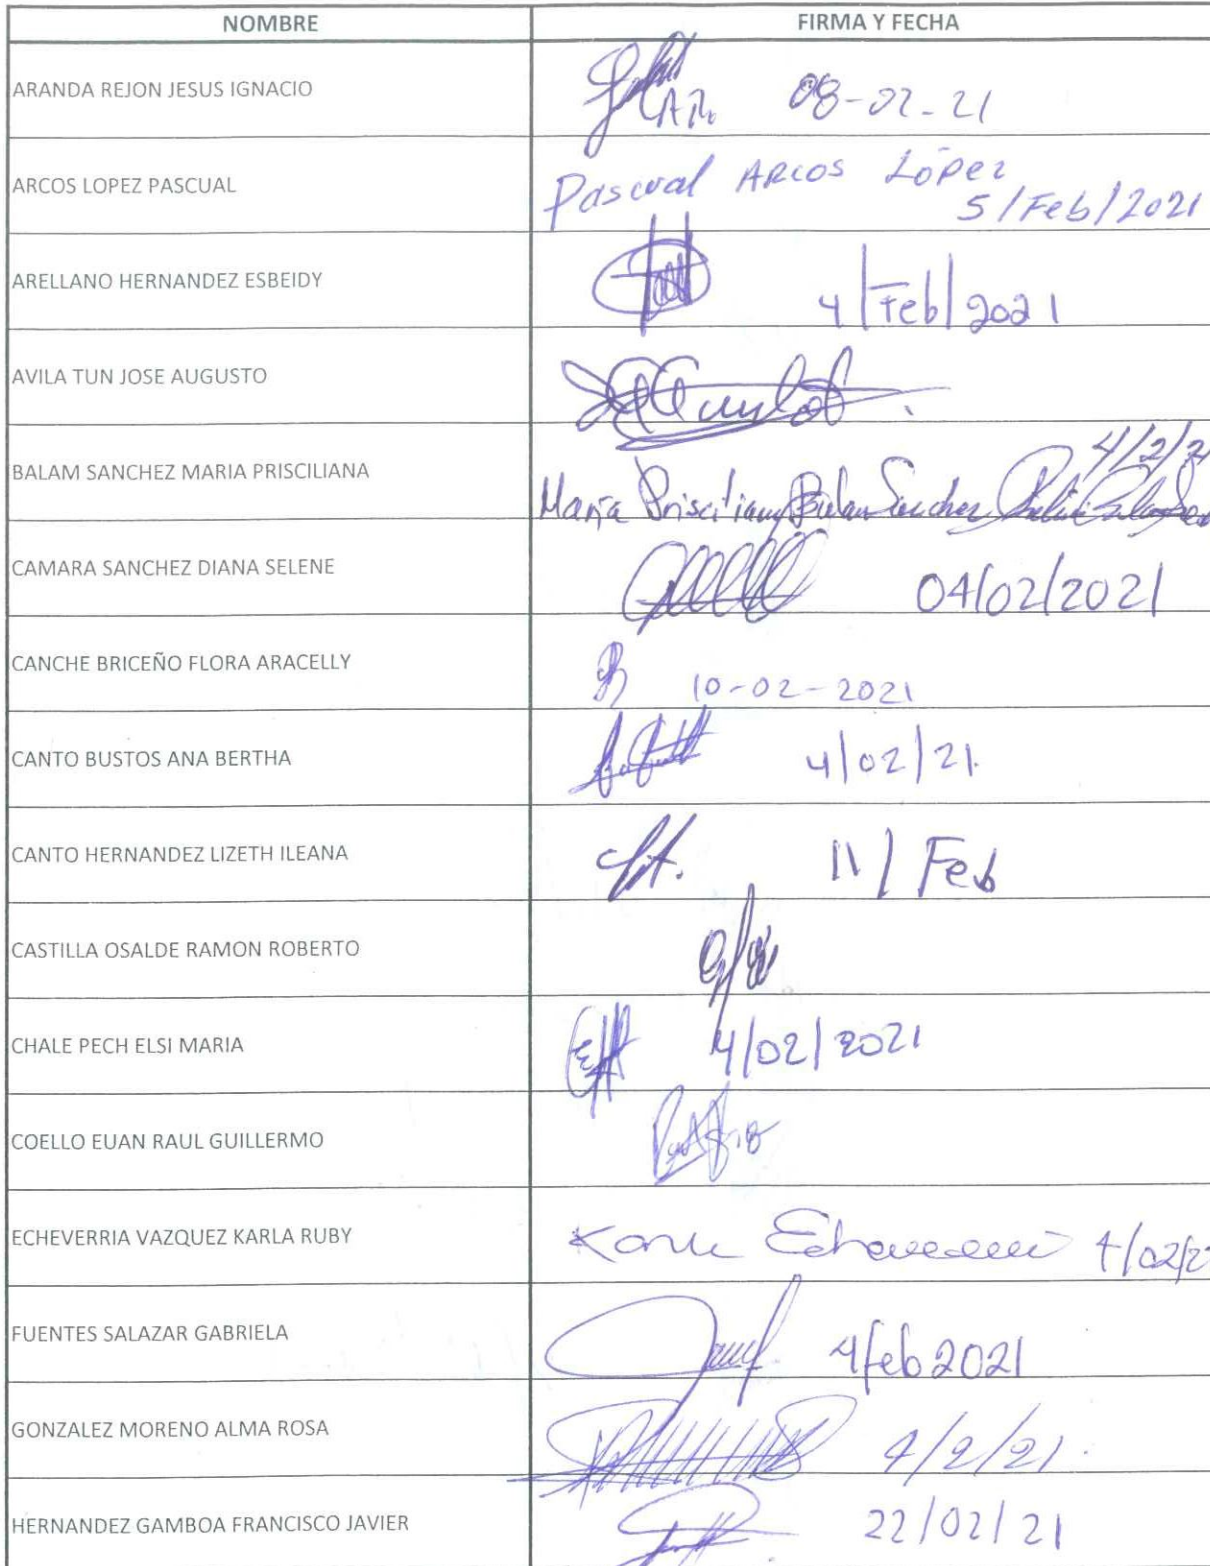 NOMBRE FIRMA Y FECHA
ARANDA REJON JESUS IGNACIO 08-02-21
ARCOS LOPEZ PASCUAL Pascual ARCOS López
5/Feb/2021
ARELLANO HERNANDEZ ESBEIDY 4/Feb/2021
AVILA TUN JOSE AUGUSTO
4/2/21
BALAM SANCHEZ MARIA PRISCILIANA Maria Prisciliana Balam Sanchez
CAMARA SANCHEZ DIANA SELENE 04/02/2021
CANCHE BRICEÑO FLORA ARACELLY 10-02-2021
CANTO BUSTOS ANA BERTHA 4/02/21.
CANTO HERNANDEZ LIZETH ILEANA 11/Feb
CASTILLA OSALDE RAMON ROBERTO
CHALE PECH ELSI MARIA 4/02/2021
COELLO EUAN RAUL GUILLERMO
ECHEVERRIA VAZQUEZ KARLA RUBY Karla Echeverria 4/02/2
FUENTES SALAZAR GABRIELA 4feb2021
GONZALEZ MORENO ALMA ROSA 4/2/21.
HERNANDEZ GAMBOA FRANCISCO JAVIER 22/02/21